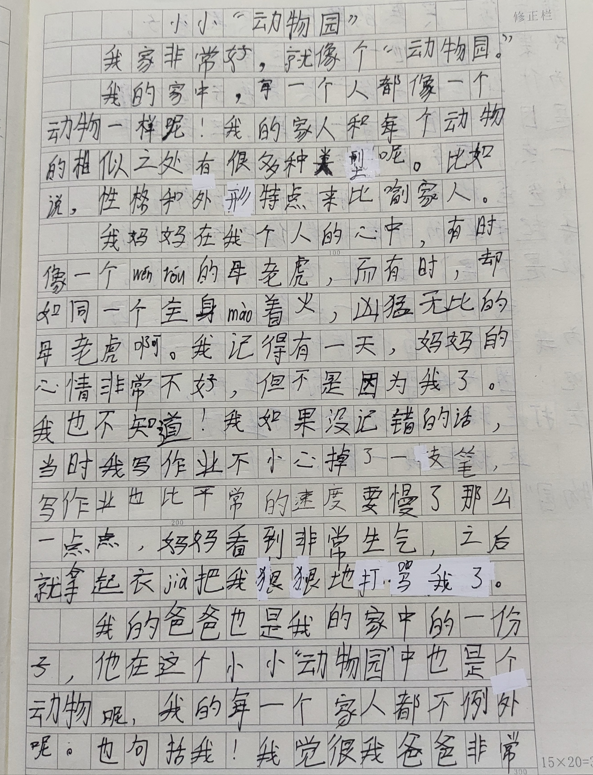 小小“动物园”
修正栏
我家非常好，就像个“动物园。”
我的家中，每一个人都像一个
动物一样呢！我的家人和每个动物
的相似之处有很多种类型呢。比如
说，性格和外形特点来比喻家人。
我妈妈在我个人的心中，有时
像一个wēn róu的母老虎，而有时，却
如同一个全身mào着火，凶猛无比的
母老虎啊。我记得有一天，妈妈的
心情非常不好，但不是因为我了。
我也不知道！我如果没记错的话，
当时我写作业不小心掉了一支笔，
写作业也比平常的速度要慢了那么
一点点，妈妈看到非常生气，之后
就拿起衣jià把我狠狠地打骂我了。
我的爸爸也是我的家中的一份
子，他在这个小小“动物园”中也是个
动物呢，我的每一个家人都不例外
呢。也包括我！我觉很我爸爸非常
15×20=3